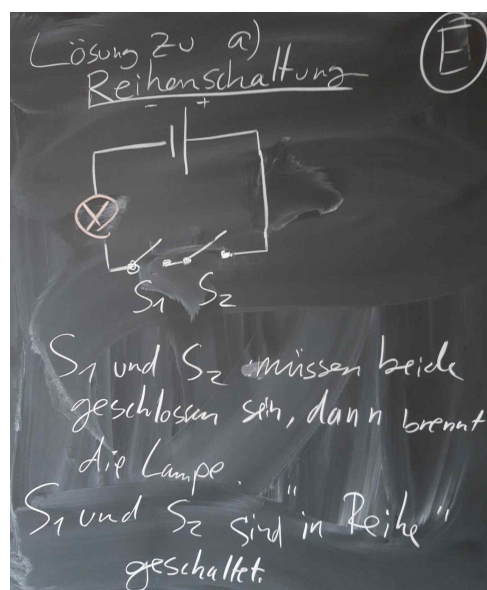 Lösung zu a)
E
Reihenschaltung
- +
S1 S2
S1 und S2 müssen beide
geschlossen sein, dann brennt
die Lampe.
S1 und S2 sind "in Reihe"
geschaltet.